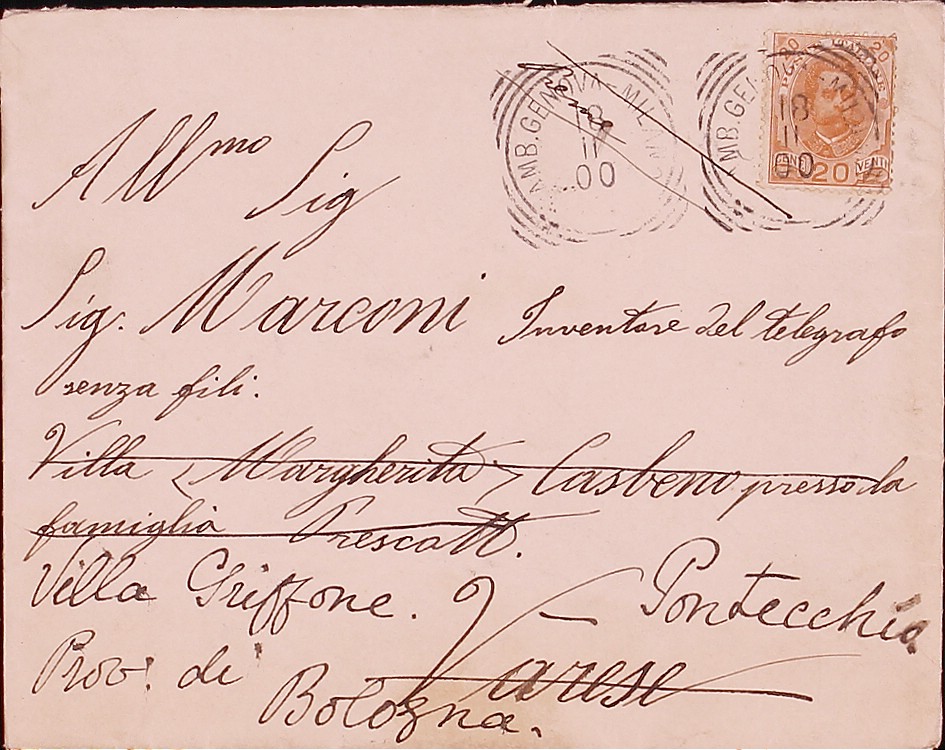 AMB. GENOVA-MILANO
18
11
00
AMB. GENOVA MILA
18
11
00
20 20
ITALIANE
CENT 20 VENTI
All mo Sig
Sig. Marconi Inventore del telegrafo
senza fili.
Villa "Margherita" Casbeno presso la
famiglia Prescott.
Villa Griffone. Pontecchio
Varese
Prov. di
Bologna.